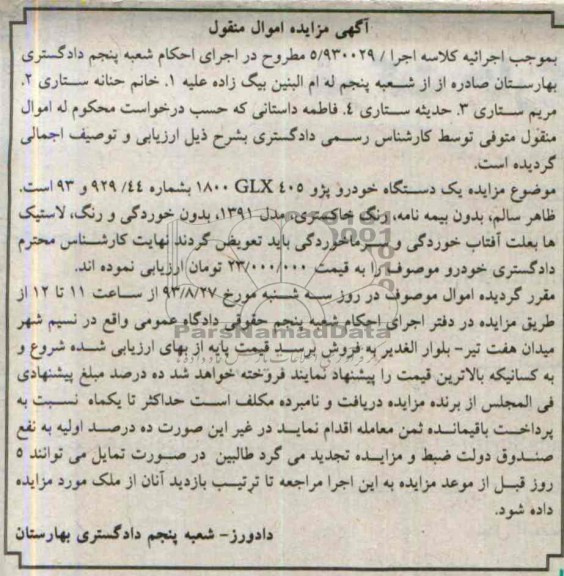 آگهی مزایده اموال منقول
بموجب اجرائیه کلاسه اجرا / ۵/۹۳۰۰۲۹ مطروح در اجرای احکام شعبه پنجم دادگستری
بهارستان صادره از از شعبه پنجم له ام البنین بیگ زاده علیه ۱. خانم حنانه ستاری ۲.
مریم ستاری ۳. حدیثه ستاری ٤. فاطمه داستانی که حسب درخواست محکوم له اموال
منقول متوفی توسط کارشناس رسمی دادگستری بشرح ذیل ارزیابی و توصیف اجمالی
گردیده است.
موضوع مزایده یک دستگاه خودرو پژو ٤۰۵ GLX ۱۸۰۰ بشماره ٤٤/ ۹۲۹ و ۹۳ است.
ظاهر سالم، بدون بیمه نامه، رنگ خاکستری، مدل ۱۳۹۱، بدون خوردگی و رنگ، لاستیک
ها بعلت آفتاب خوردگی و سرماخوردگی باید تعویض گردند نهایت کارشناس محترم
دادگستری خودرو موصوف را به قیمت ۲۳/۰۰۰/۰۰۰ تومان ارزیابی نموده اند.
مقرر گردیده اموال موصوف در روز سه شنبه مورخ ۹۳/۸/۲۷ از ساعت ۱۱ تا ۱۲ از
طریق مزایده در دفتر اجرای احکام شعبه پنجم حقوقی دادگاه عمومی واقع در نسیم شهر
ParsNamadData
میدان هفت تیر- بلوار الغدیر به فروش برسد قیمت پایه از بهای ارزیابی شده شروع و
به کسانیکه بالاترین قیمت را پیشنهاد نمایند فروخته خواهد شد ده درصد مبلغ پیشنهادی
فی المجلس از برنده مزایده دریافت و نامبرده مکلف است حداکثر تا یکماه نسبت به
پرداخت باقیمانده ثمن معامله اقدام نماید در غیر این صورت ده درصد اولیه به نفع
صندوق دولت ضبط و مزایده تجدید می گرد طالبین در صورت تمایل می توانند ۵
روز قبل از موعد مزایده به این اجرا مراجعه تا ترتیب بازدید آنان از ملک مورد مزایده
داده شود.
دادورز- شعبه پنجم دادگستری بهارستان